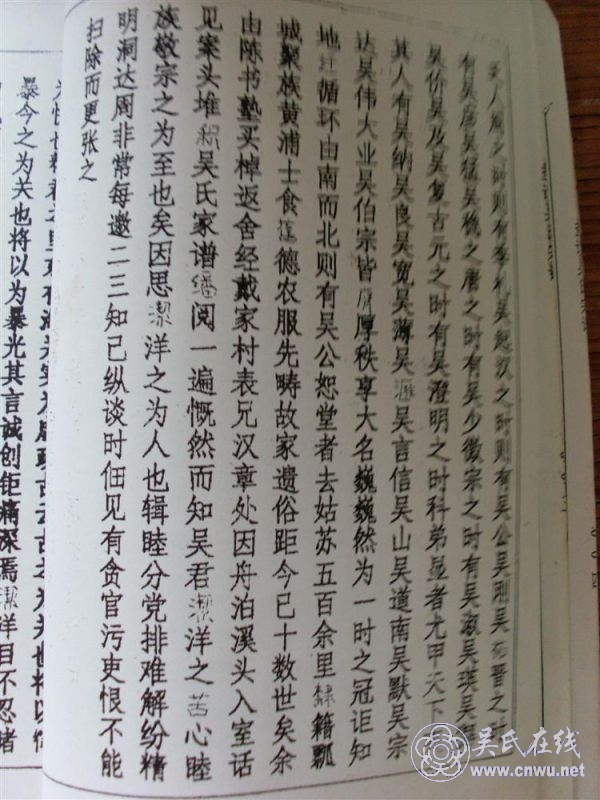 人周之时则有季札吴起汉之时则有吴公吴刚吴晋之时
有吴彦吴猛吴之唐之时有吴少微宗之时有吴淑吴瑛吴
吴价吴及吴复古元之时有吴澄明之时科弟显者尤甲天下
其人有吴纳吴良吴宽吴溥吴吴言信吴山吴道南吴默吴宗
达吴伟大业吴伯宗皆厚秩享大名巍巍然为一时之冠讵知
地循环由南而北则有吴公恕堂者去姑苏五百余里隸籍瓢
城聚族黄浦士食德农服先畴故家遗俗距今已十数世矣余
由陈书塾买棹返舍经戴家村表兄汉章处因舟泊溪头入室话
见案头堆积吴氏家谱繙阅一遍慨然而知吴君潔洋之苦心睦
族敬宗之为至也矣因思潔洋之为人也辑睦分党排难解纷精
明洞达周非常每邀二三知已纵谈时佃见有贪官污吏恨不能
扫除而更张之
古之为关也将以
暴今之为关也将以为暴光其言诚创钜痛深焉潔洋目不忍睹
吴氏在线
www.cnwu.net